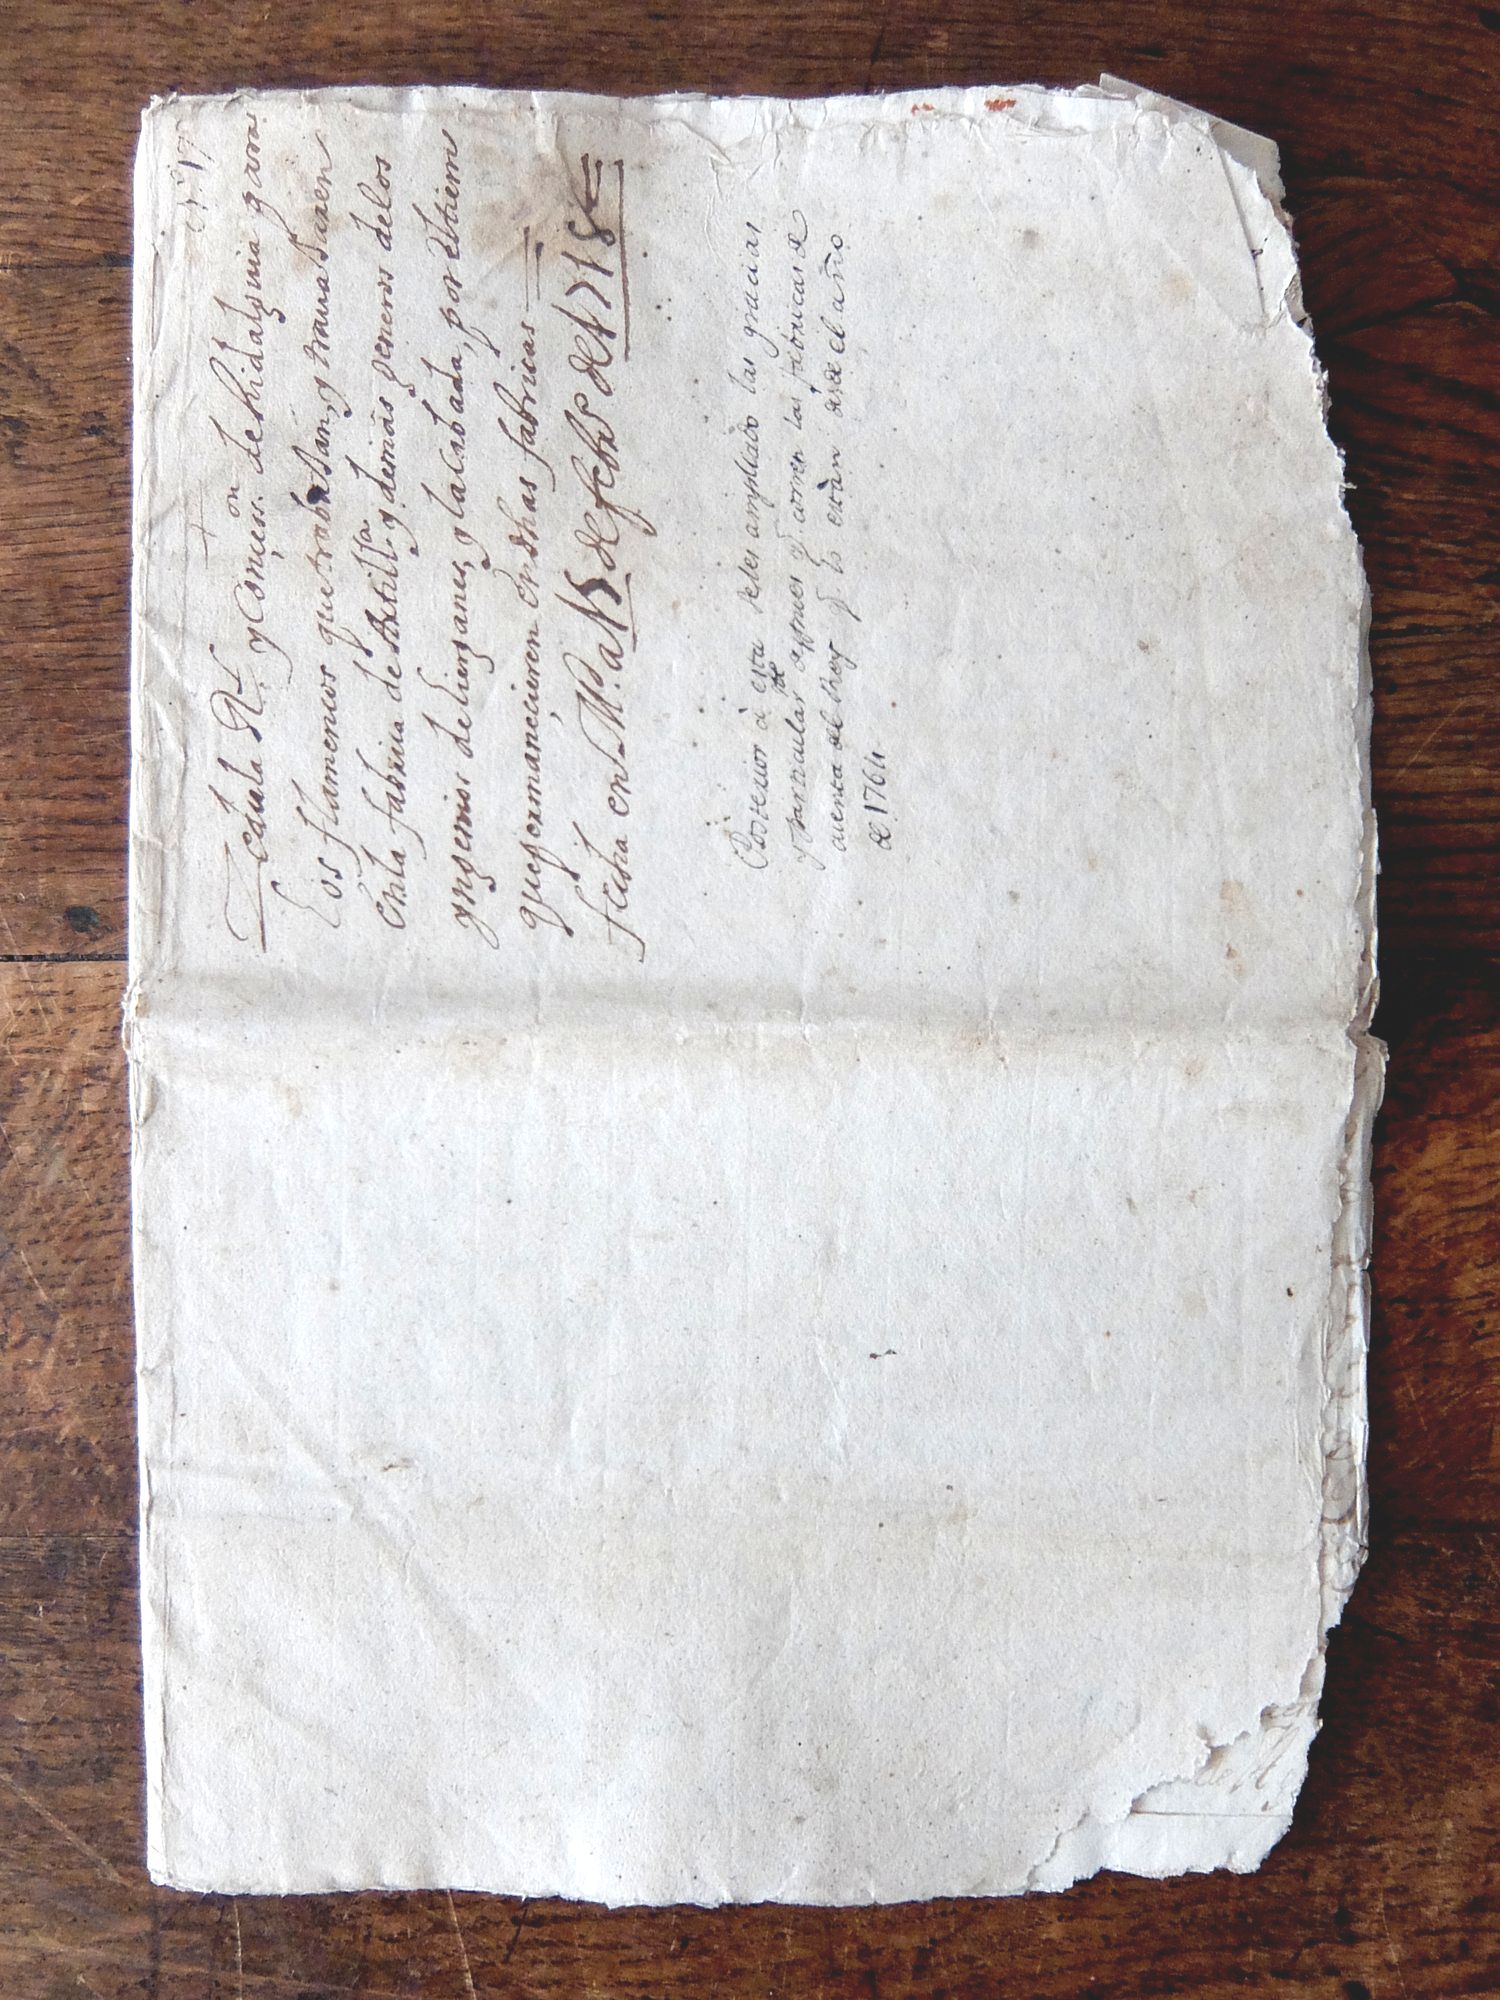 nº 17
+
Zedula Rl. y Conçess.on de hidalguia para
Los flamencos que trabaxan, y travaxaren
en la fabrica de Artill.a y demas generos de los
yngenios de Lierganes, y la Cabada, por el tiempo
que permanecieren en dhas fabricas
fecha en M.d a 15 de febr.o de 1718
Posterior à esta se les ampliado las gracias
y particular.te despues q. corren las fabricas de
cuenta del Rey q. lo están desde el año
de 1764